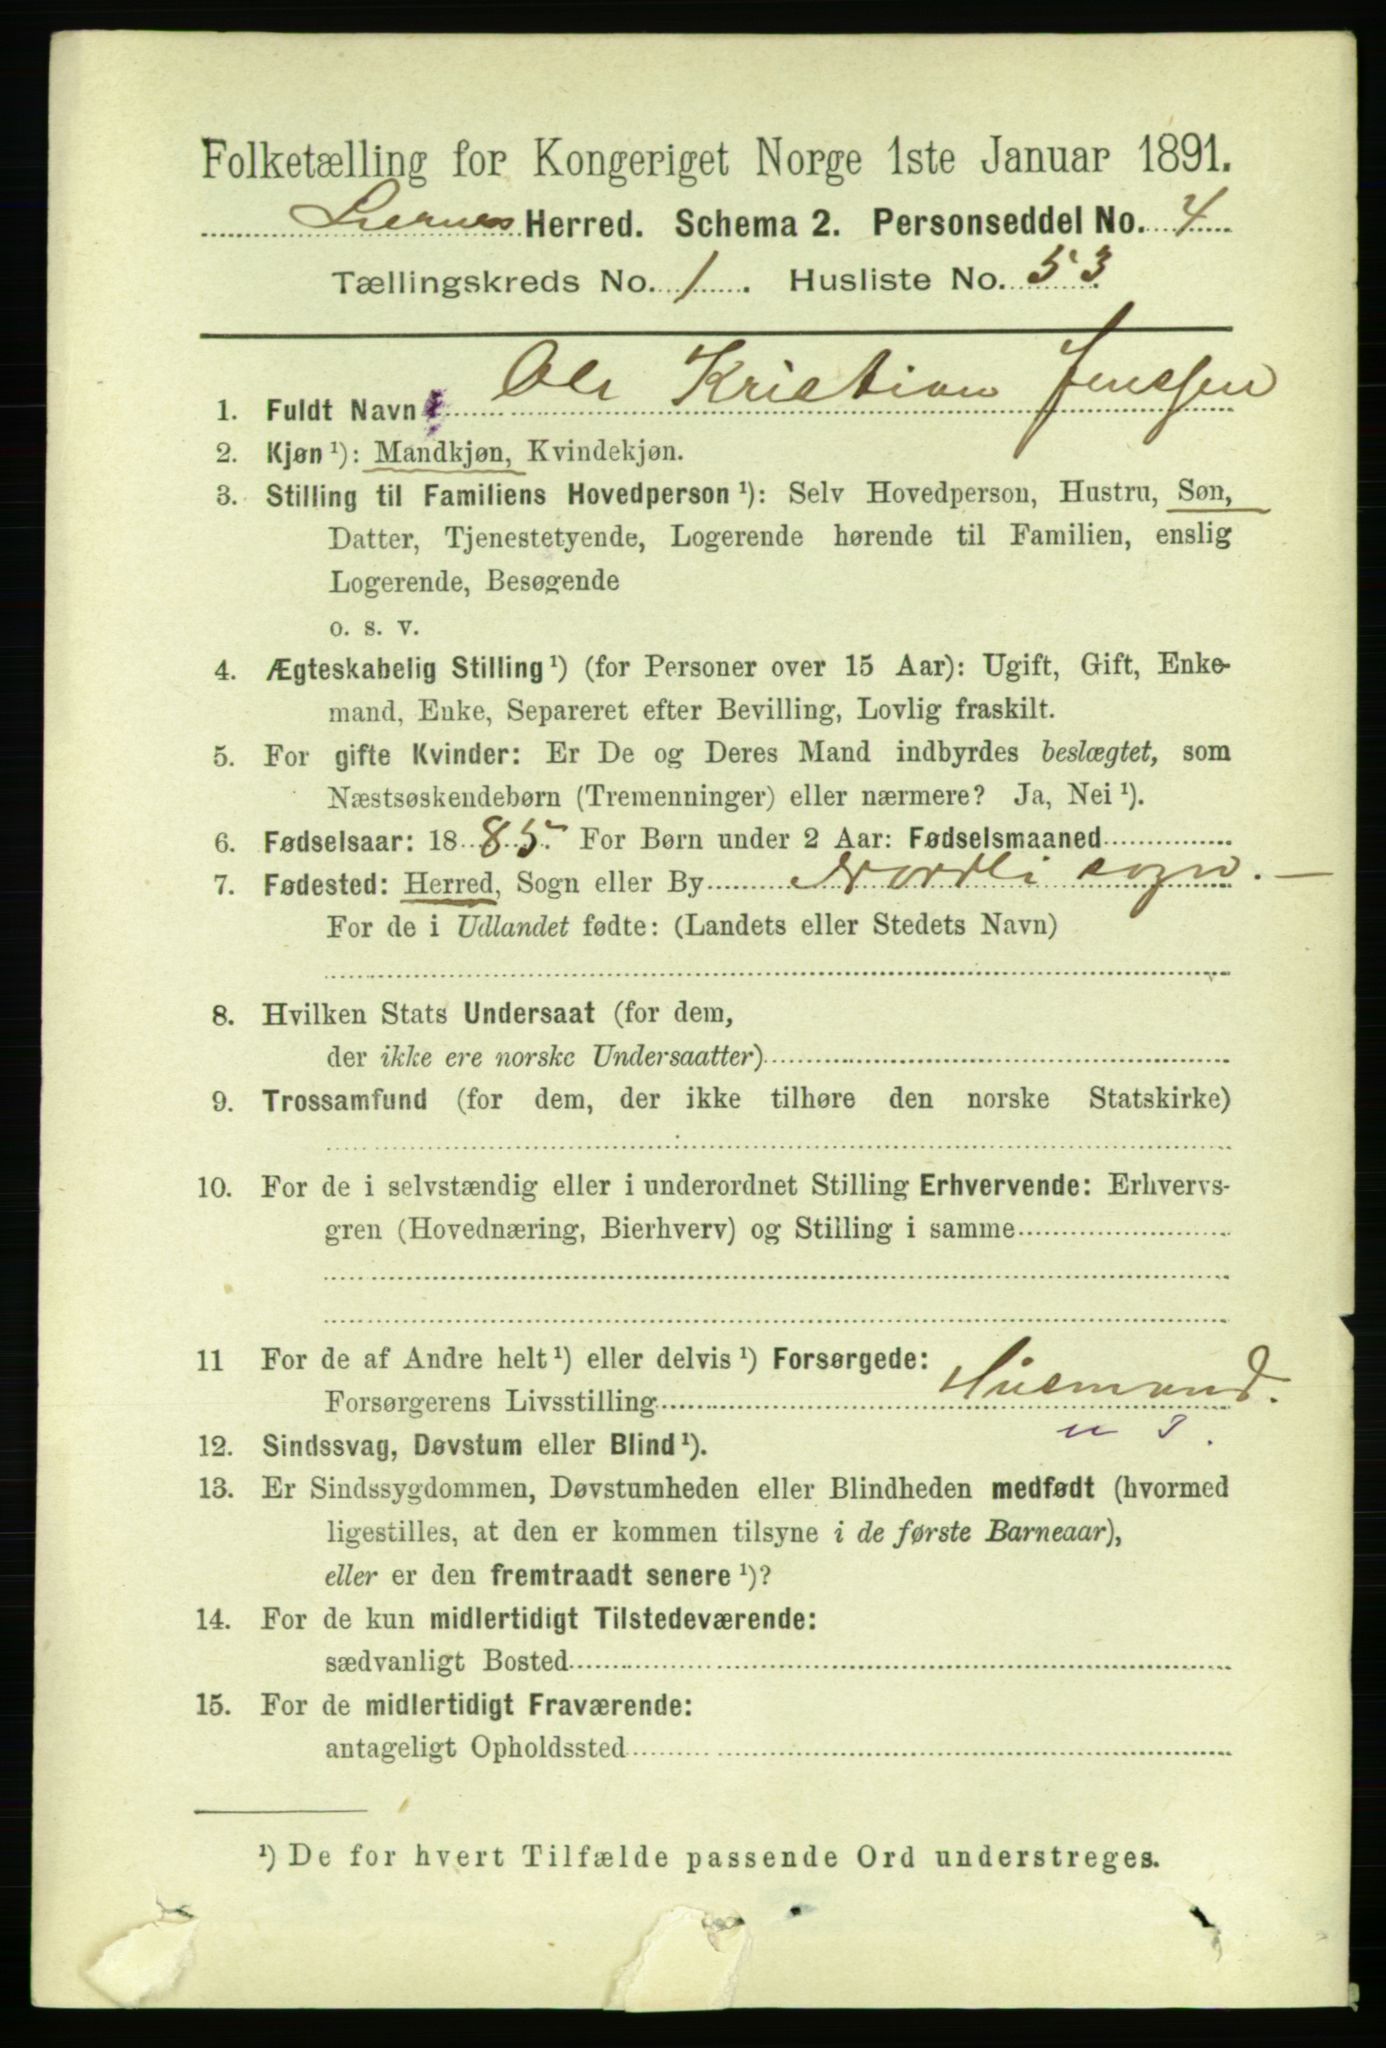 Folketælling for Kongeriget Norge 1ste Januar 1891.
Liernes Herred. Schema 2. Personseddel No. 4
Tællingskreds No. 1. Husliste No. 53
1. Fuldt Navn Ole Kristian Jenssen
2. Kjøn ¹): Mandkjøn, Kvindekjøn.
3. Stilling til Familiens Hovedperson ¹): Selv Hovedperson, Hustru, Søn,
Datter, Tjenestetyende, Logerende hørende til Familien, enslig
Logerende, Besøgende
o. s. v.
4. Ægteskabelig Stilling ¹) (for Personer over 15 Aar): Ugift, Gift, Enke-
mand, Enke, Separeret efter Bevilling, Lovlig fraskilt.
5. For gifte Kvinder: Er De og Deres Mand indbyrdes beslægtet, som
Næstsøskendebørn (Tremenninger) eller nærmere? Ja, Nei ¹).
6. Fødselsaar: 1885. For Børn under 2 Aar: Fødselsmaaned
7. Fødested: Herred, Sogn eller By Nordli sogn. —
For de i Udlandet fødte: (Landets eller Stedets Navn)
8. Hvilken Stats Undersaat (for dem,
der ikke ere norske Undersaatter)
9. Trossamfund (for dem, der ikke tilhøre den norske Statskirke)
10. For de i selvstændig eller i underordnet Stilling Erhvervende: Erhvervs-
gren (Hovednæring, Bierhverv) og Stilling i samme
11 For de af Andre helt ¹) eller delvis ¹) Forsørgede:
Forsørgerens Livsstilling Husmand.
12. Sindssvag, Døvstum eller Blind ¹).
13. Er Sindssygdommen, Døvstumheden eller Blindheden medfødt (hvormed
ligestilles, at den er kommen tilsyne i de første Barneaar),
eller er den fremtraadt senere ¹)?
14. For de kun midlertidigt Tilstedeværende:
sædvanligt Bosted
15. For de midlertidigt Fraværende:
antageligt Opholdssted
¹) De for hvert Tilfælde passende Ord understreges.